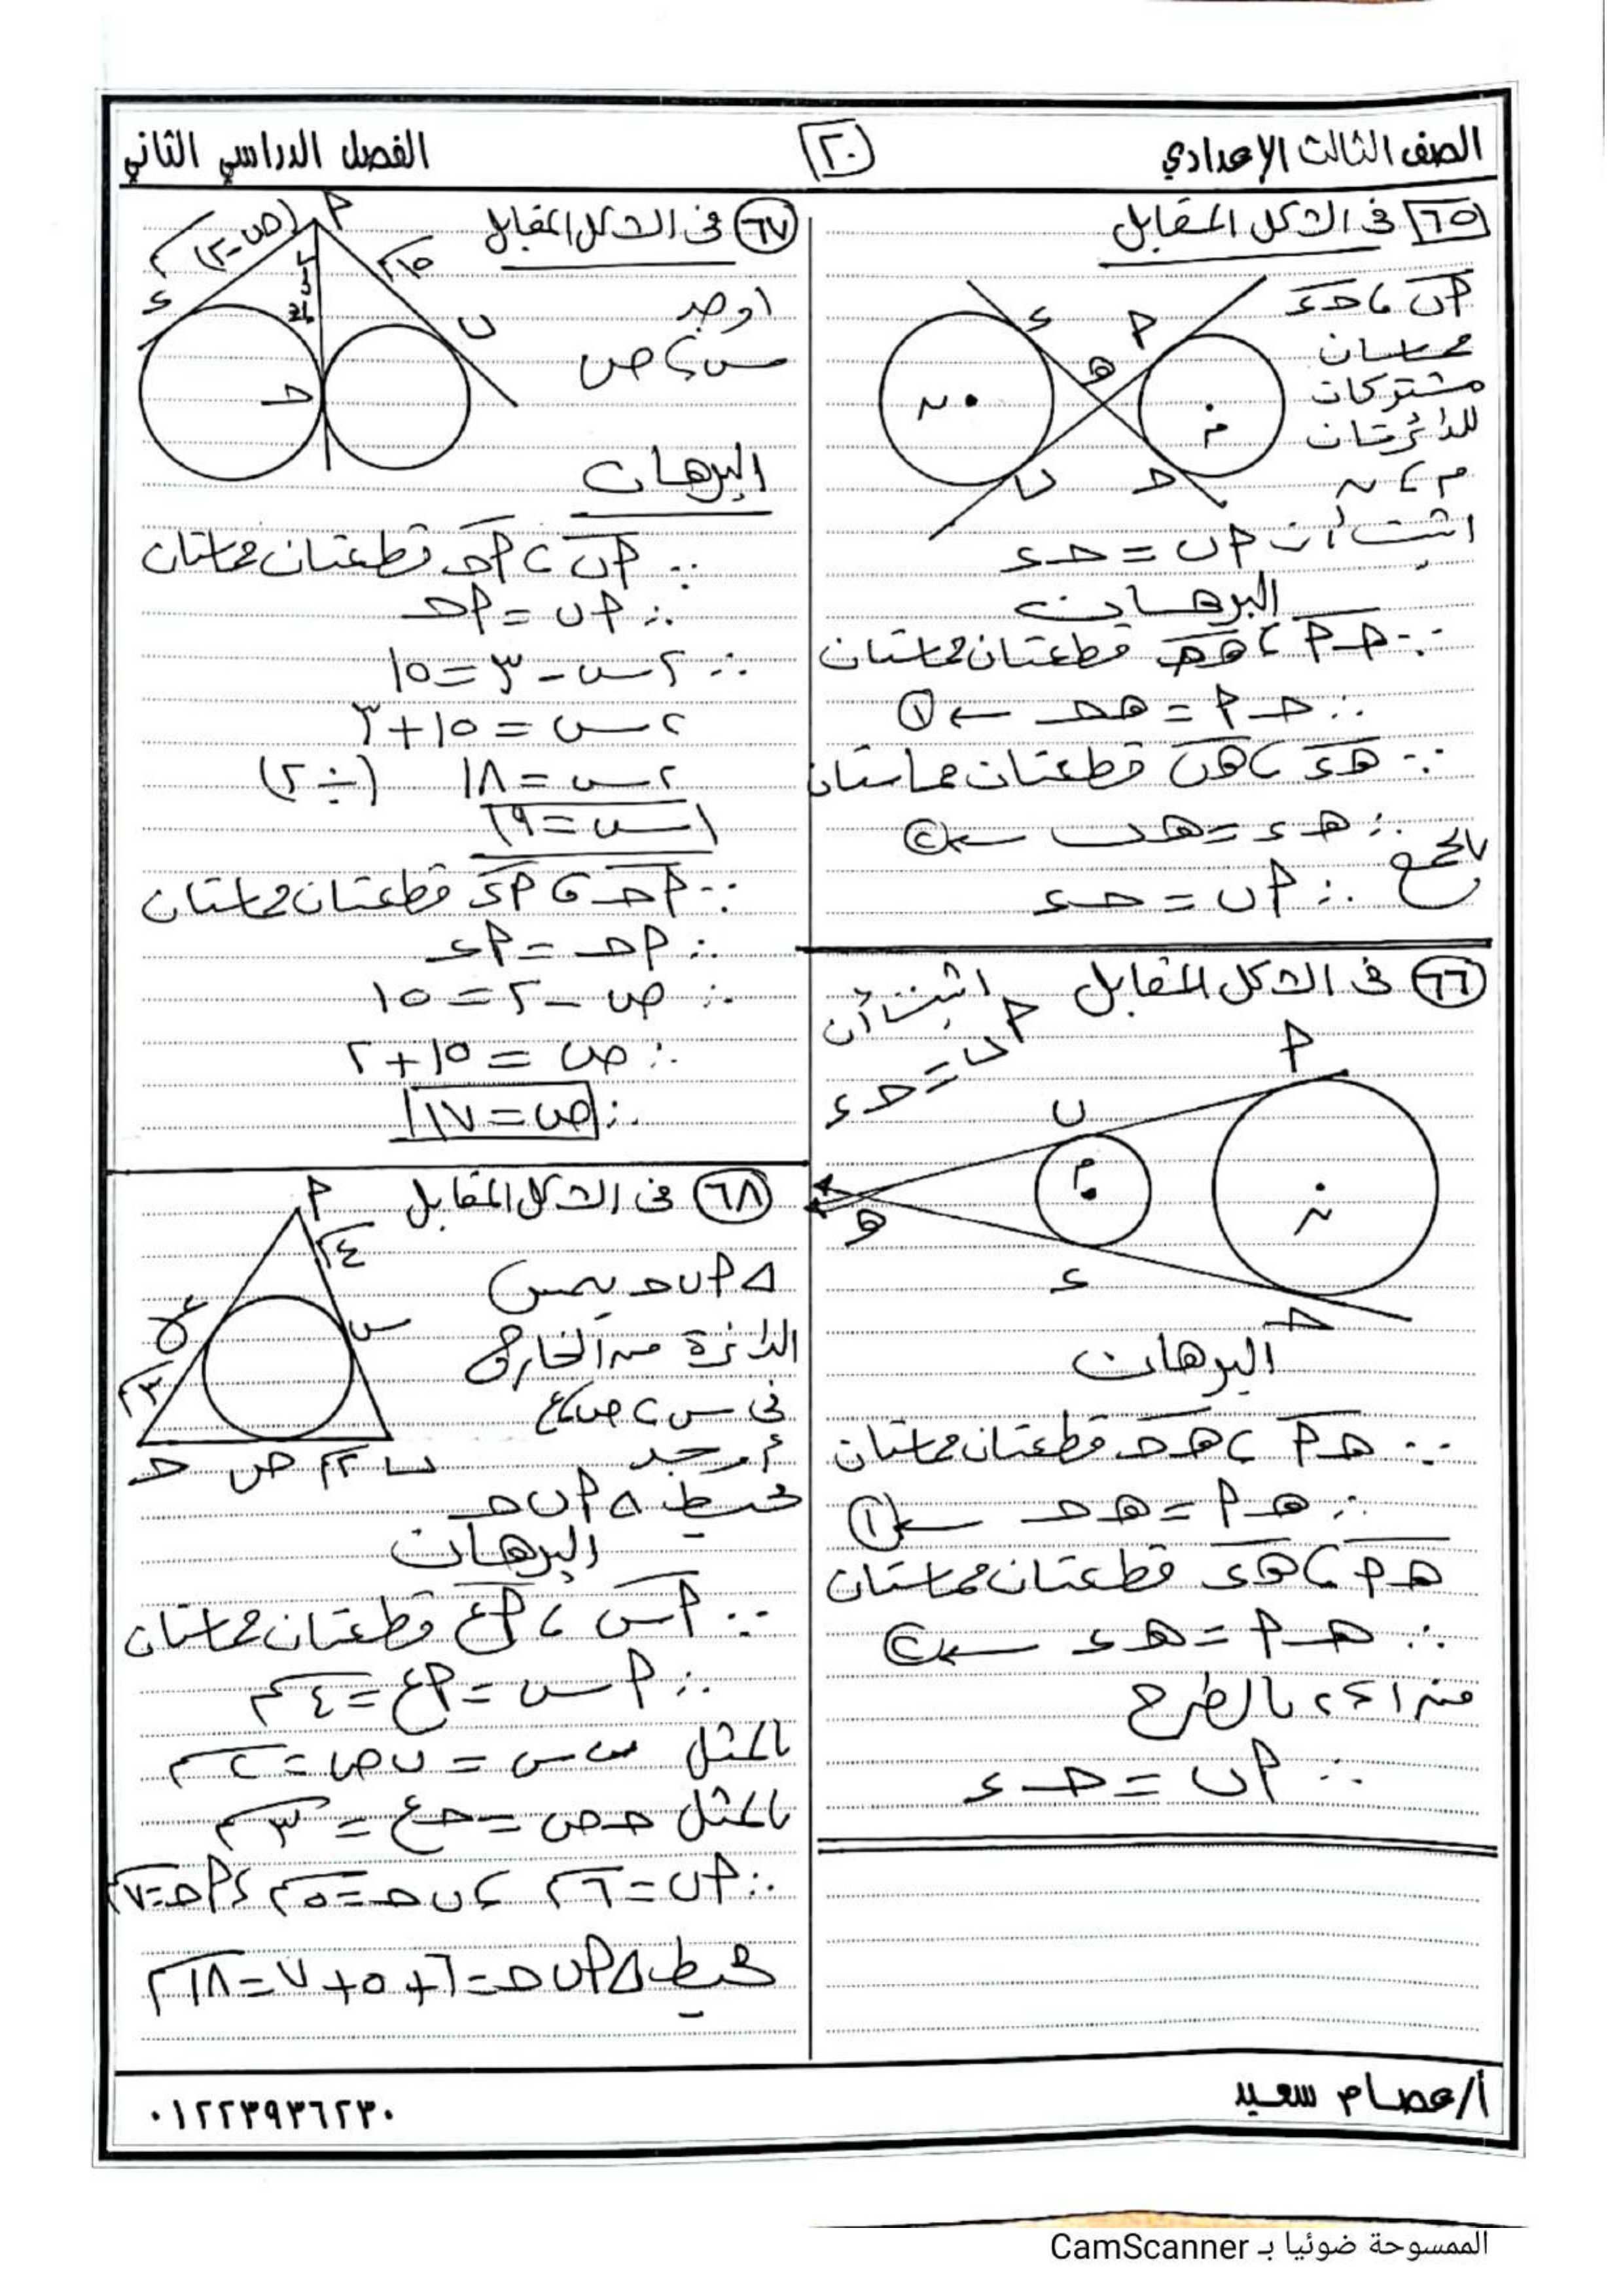 الصف الثالث الإعدادي
٢٠
الفصل الدراسي الثاني
٦٥ في الشكل المقابل
أب ، حـ ء
مماسان
مشتركان
للدائرتان
م ، ن
ء
أ
هـ
ن
م
ب
حـ
اثبت أن أب = حـ ء
البرهان
∵ هـ أ ، هـ حـ قطعتان مماستان
∴ هـ أ = هـ حـ ← ١
∵ هـ ء ، هـ ب قطعتان مماستان
∴ هـ ء = هـ ب ← ٢
بالجمع ∴ أب = حـ ء
٦٦ في الشكل المقابل اثبت أن
أب = حـ ء
أ
ب
م
ن
هـ
ء
حـ
البرهان
∵ هـ أ ، هـ حـ قطعتان مماستان
∴ هـ أ = هـ حـ ← ١
هـ أ ، هـ ء قطعتان مماستان
∴ هـ أ = هـ ء ← ٢
من ١ ، ٢ بالطرح
∴ أب = حـ ء
٦٧ في الشكل المقابل
أ
(ص-٢) سم
١٥ سم
ء
ب
حـ
اوجد
س ، ص
البرهان
∵ أب ، أحـ قطعتان مماستان
∴ أب = أحـ
∴ ٢س - ٣ = ١٥
٢س = ١٥ + ٣
٢س = ١٨ (÷ ٢)
س = ٩
∵ أحـ ، أء قطعتان مماستان
∴ أحـ = أء
∴ ص - ٢ = ١٥
∴ ص = ١٥ + ٢
∴ ص = ١٧
٦٨ في الشكل المقابل
أ
٤ سم
ع
س
٣ سم
ب ٢ سم ص حـ
Δ أ ب حـ يمس
الدائرة من الخارج
في س ، ص ، ع
أوجد
محيط Δ أ ب حـ
البرهان
∵ أس ، أع قطعتان مماستان
∴ أس = أع = ٤ سم
بالمثل ب س = ب ص = ٢ سم
بالمثل حـ ص = حـ ع = ٣ سم
∴ أب = ٦ سم ، ب حـ = ٥ سم ، أحـ = ٧ سم
محيط Δ أ ب حـ = ٦ + ٥ + ٧ = ١٨ سم
أ/عصام سعيد
٠١٢٢٣٩٣٦٢٣٠
الممسوحة ضوئيا بـ CamScanner